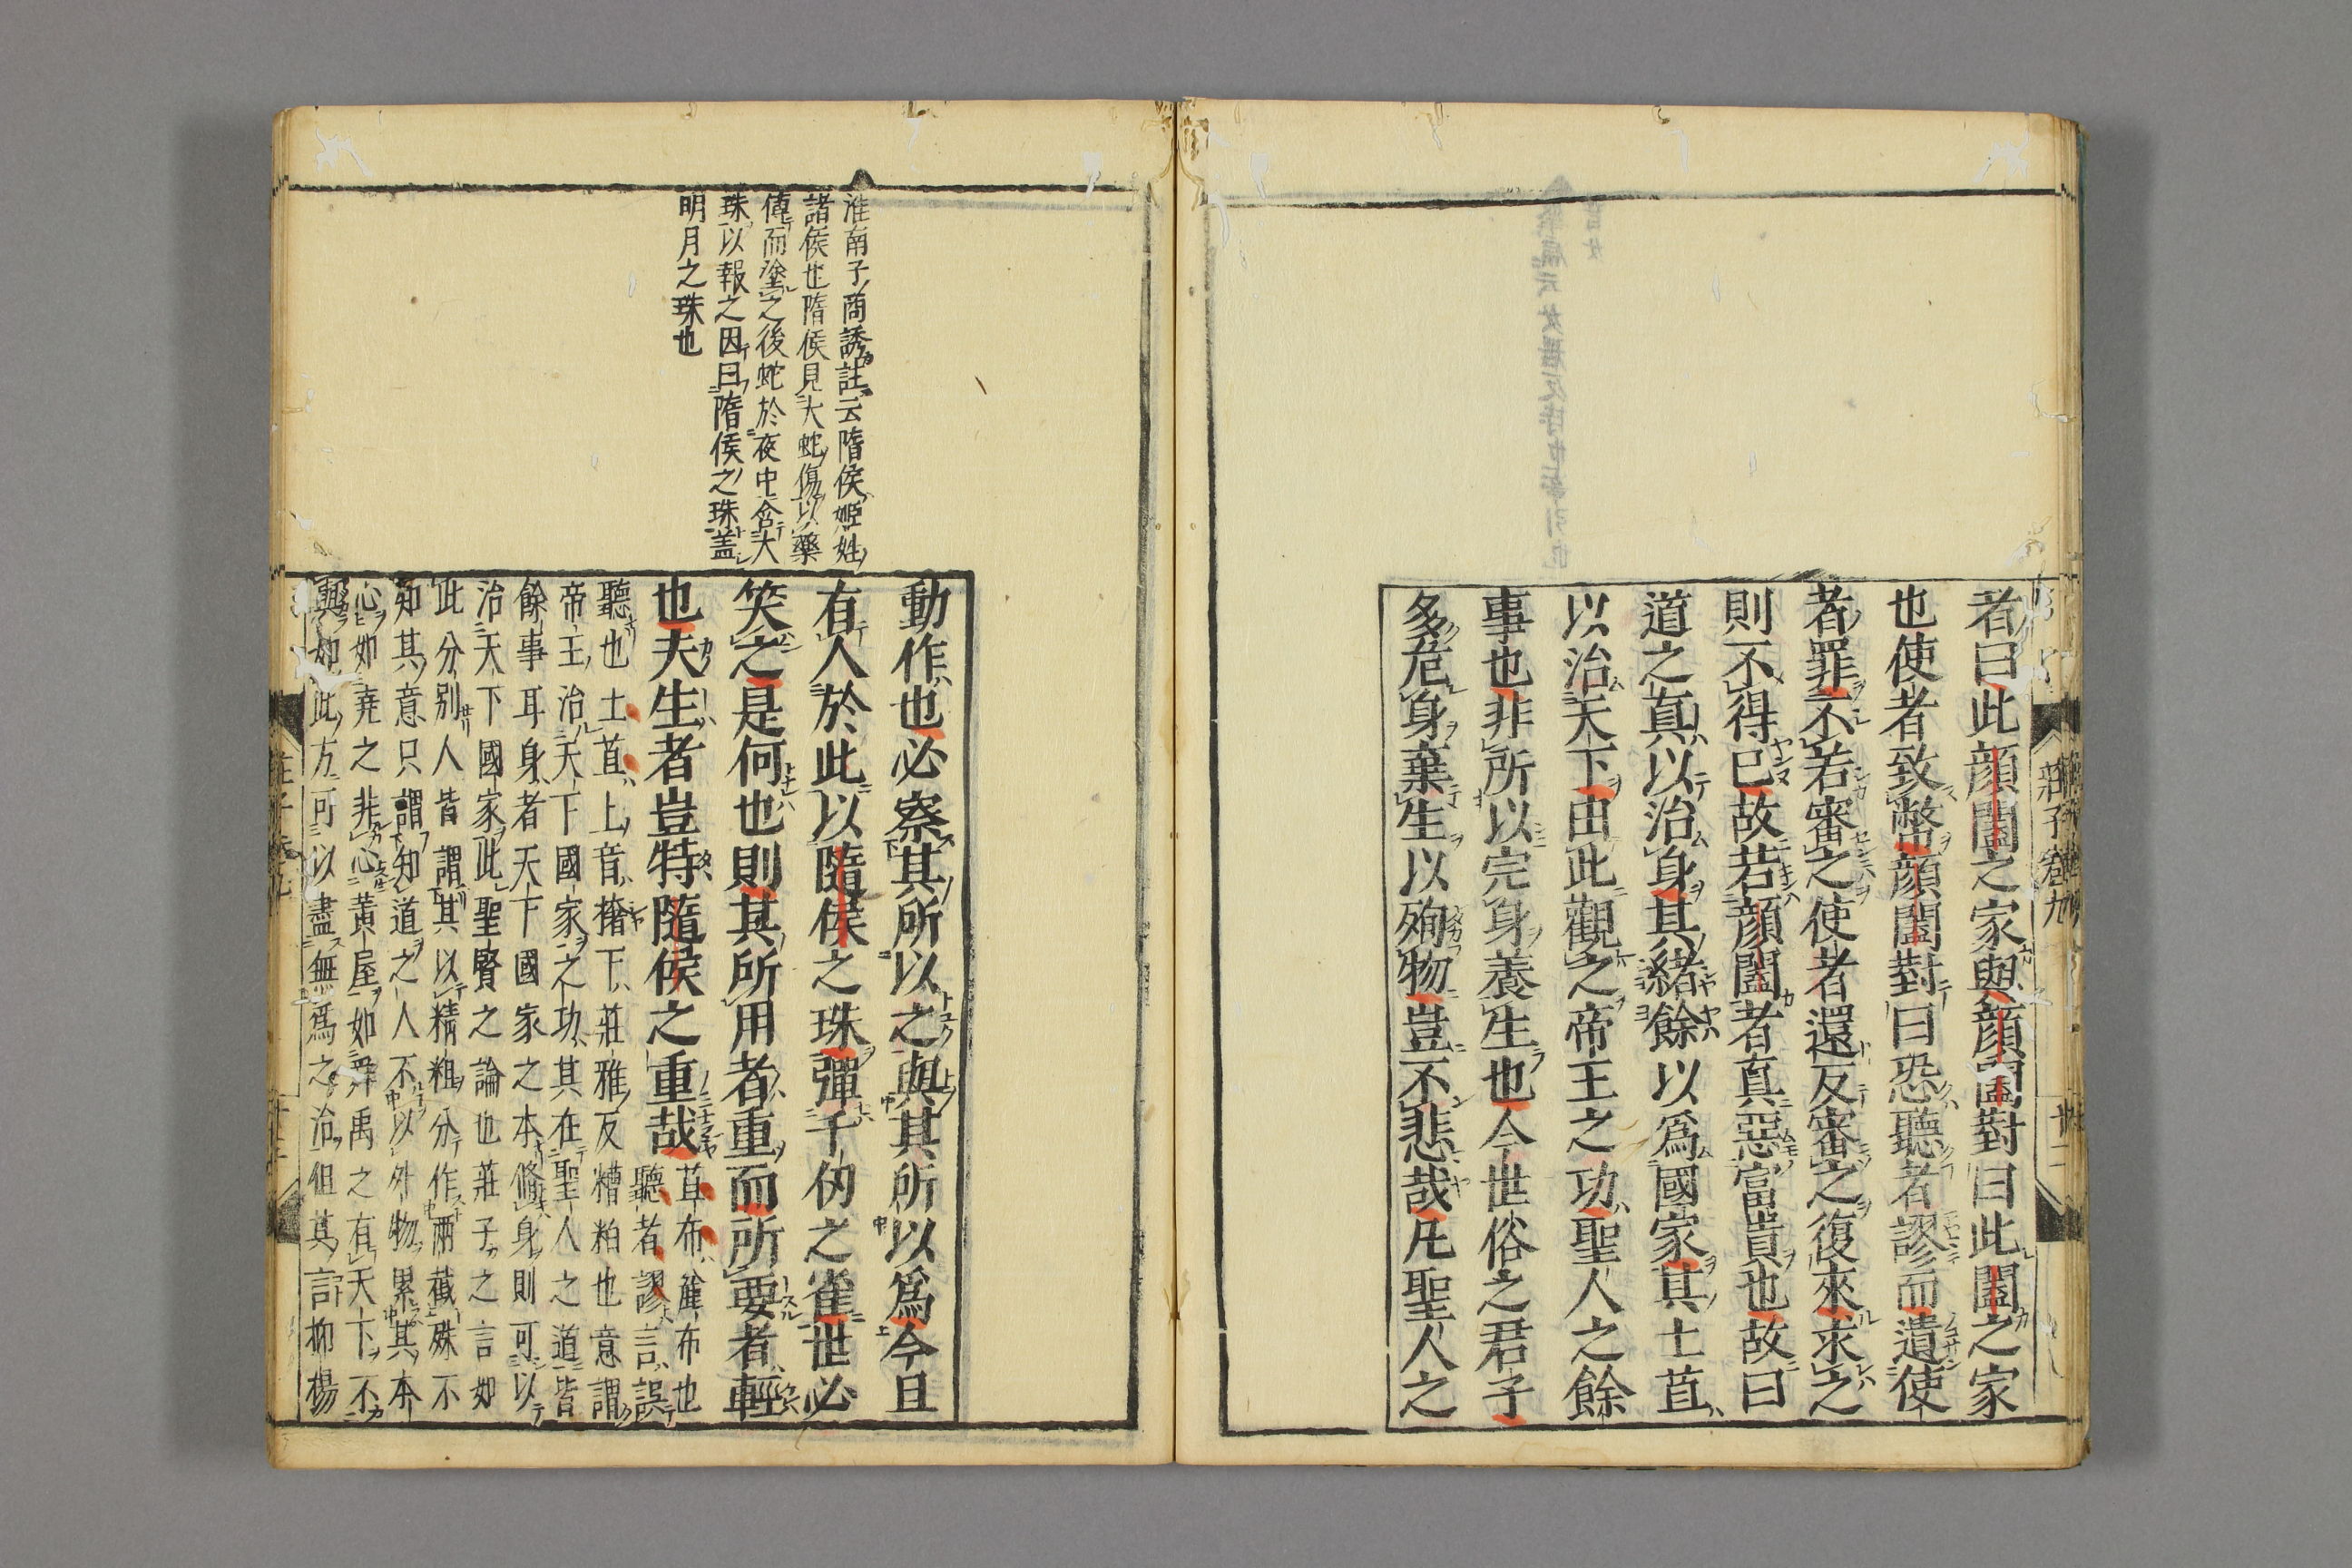 者曰此顔闔之家與顔闔對曰此闔之家
也使者致幣顔闔對曰恐聽者謬而遺使
者罪不若審之使者還反審之復來求之
則不得已故若顔闔者真惡富貴也故曰
道之真以治身其緒餘以爲國家其土苴
以治天下由此觀之帝王之功聖人之餘
事也非所以完身養生也今世俗之君子
多危身棄生以殉物豈不悲哉凡聖人之
莊子卷九
淮南子高誘註云隋侯姬姓
諸侯也隋侯見大蛇傷以藥
傅而塗之後蛇於夜中含大
珠以報之因曰隋侯之珠盖
明月之珠也
動作也必察其所以之與其所以爲今且
有人於此以隨侯之珠彈千仞之雀世必
笑之是何也則其所用者重而所要者輕
也夫生者豈特隨侯之重哉
苴布麁布也
聽者謬言誤
聽也土苴上音撦下莊雅反糟粕也意謂
帝王治天下國家之功其在聖人之道皆
餘事耳身者天下國家之本脩身則可以
治天下國家此聖賢之論也莊子之言如
此分別人皆謂其以精粗分作兩截殊不
知其意只謂知道之人不以外物累其本
心如堯之非心黄屋如舜禹之有天下不
與如此方可以盡無爲之治但其言抑揚